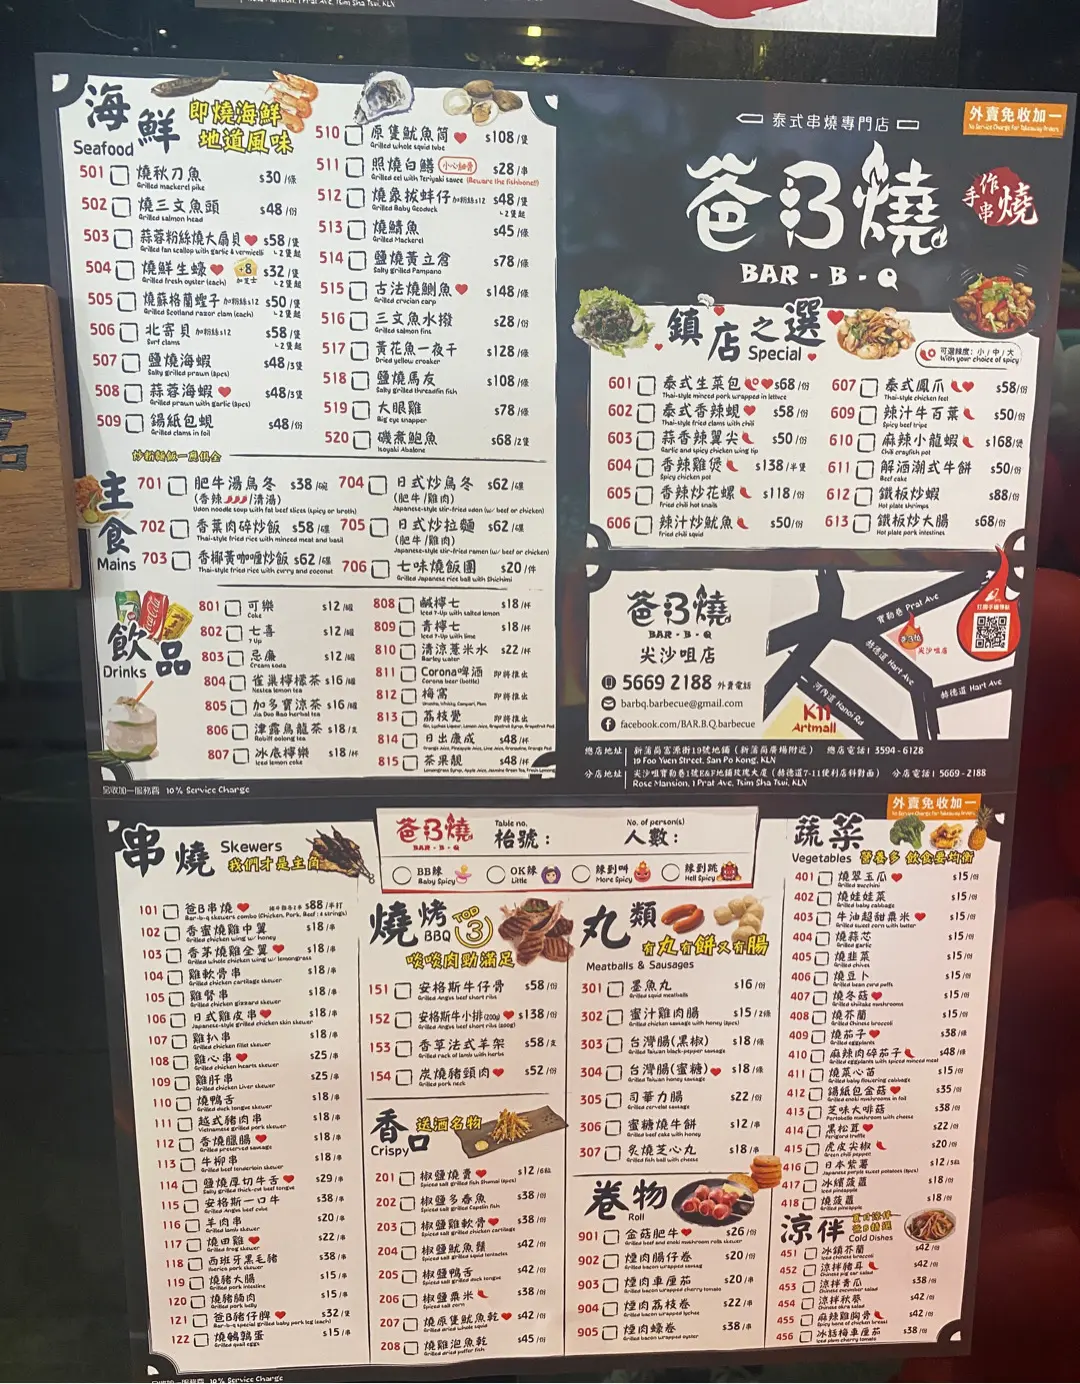 Rose Mansion, 1 Prat Ave, Tsim Sha Tsui, KLN
海鮮
Seafood
即燒海鮮
地道風味
501 燒秋刀魚 $30/條
Grilled mackerel pike
502 燒三文魚頭 $48/份
Grilled salmon head
503 蒜蓉粉絲燒大扇貝 $58/隻
Grilled fan scallop with garlic & vermicelli 2隻起
504 燒鮮生蠔 +8 加芝士 $32/隻
Grilled fresh oyster (each) 2隻起
505 燒蘇格蘭蟶子 加粉絲$12 $50/隻
Grilled Scotland razor clam (each) 2隻起
506 北寄貝 加粉絲$12 $58/隻
Surf clams 2隻起
507 鹽燒海蝦 $48/3隻
Salty grilled prawn (3pcs)
508 蒜蓉海蝦 $48/3隻
Grilled prawn with garlic (3pcs)
509 錫紙包蜆 $48/份
Grilled clams in foil
510 原隻魷魚筒 $108/隻
Grilled whole squid tube
511 照燒白鱔 小心細骨 $28/串
Grilled eel with Teriyaki sauce (Beware the fishbone!)
512 燒象拔蚌仔 加粉絲$12 $48/隻
Grilled Baby Geoduck 2隻起
513 燒鯖魚 $45/條
Grilled Mackerel
514 鹽燒黃立倉 $78/條
Salty grilled Pampano
515 古法燒鯽魚 $148/條
Grilled crucian carp
516 三文魚水撥 $28/份
Grilled salmon fins
517 黃花魚一夜干 $128/條
Dried yellow croaker
518 鹽燒馬友 $108/條
Salty grilled threadfin fish
519 大眼雞 $78/條
Big eye snapper
520 磯煮鮑魚 $68/2隻
Isoyaki Abalone
主食
Mains
炒粉麵飯一應俱全
701 肥牛湯烏冬 $38/碗
(香辣/清湯)
Udon noodle soup with fat beef slices (spicy or broth)
702 香葉肉碎炒飯 $58/碟
Thai-style fried rice with minced meat and basil
703 香椰黃咖喱炒飯 $62/碟
Thai-style fried rice with curry and coconut
704 日式炒烏冬 $62/碟
(肥牛/雞肉)
Japanese-style stir-fried udon (w/ beef or chicken)
705 日式炒拉麵 $62/碟
(肥牛/雞肉)
Japanese-style stir-fried ramen (w/ beef or chicken)
706 七味燒飯團 $20/件
Grilled Japanese rice ball with Shichimi
飲品
Drinks
801 可樂 $12/罐
Coke
802 七喜 $12/罐
7 Up
803 忌廉 $12/罐
Cream soda
804 雀巢檸檬茶 $16/罐
Nestea lemon tea
805 加多寶涼茶 $16/罐
Jia Duo Bao herbal tea
806 津露烏龍茶 $18/支
807 冰底檸樂 $18/杯
Iced lemon coke
808 鹹檸七 $18/杯
Iced 7-Up with salted lemon
809 青檸七 $18/杯
Iced 7-Up with lime
810 清涼薏米水 $22/杯
Barley water
811 Corona啤酒 即將推出
Corona beer (bottle)
812 梅窩 即將推出
813 荔枝覺 即將推出
814 日出康成 $48/杯
815 茶果靚 $48/杯
另收加一服務費 10% Service Charge
泰式串燒專門店
外賣免收加一
No Service Charge For Takeaway Orders
爸B燒
BAR-B-Q
手作串燒
鎮店之選
Special
可選辣度:小/中/大
With your choice of spicy
601 泰式生菜包 $68/份
Thai-style minced pork wrapped in lettuce
602 泰式香辣蜆 $58/份
Thai-style fried clams with chili
603 蒜香辣翼尖 $50/份
Garlic and spicy chicken wing tip
604 香辣雞煲 $138/半隻
Spicy chicken pot
605 香辣炒花螺 $118/份
Fried chili hot snails
606 辣汁炒魷魚 $50/份
Fried chili squid
607 泰式鳳爪 $58/份
Thai-style chicken feet
609 辣汁牛百葉 $50/份
Spicy beef tripe
610 麻辣小龍蝦 $168/煲
Chili crayfish pot
611 解酒潮式牛餅 $50/份
Beef cake
612 鐵板炒蝦 $88/份
Hot plate shrimps
613 鐵板炒大腸 $68/份
Hot plate pork intestines
爸B燒
BAR-B-Q
尖沙咀店
5669 2188 外賣電話
barbq.barbecue@gmail.com
facebook.com/BAR.B.Q.barbecue
寶勒巷 Prat Ave
赫德道 Hart Ave
赫德道 Hart Ave
河內道 Hanoi Rd
爸B燒
尖沙咀店
K11
Artmall
總店地址 新蒲崗富源街19號地鋪(新蒲崗廣場附近) 總店電話:3594-6128
19 Foo Yuen Street, San Po Kong, KLN
分店地址 尖沙咀寶勒巷1號E&F地鋪玫瑰大廈(赫德道7-11便利店斜對面) 分店電話:5669-2188
Rose Mansion, 1 Prat Ave, Tsim Sha Tsui, KLN
外賣免收加一
No Service Charge For Takeaway Orders
爸B燒
BAR-B-Q
Table no.
枱號:
No. of person(s)
人數:
BB辣
Baby Spicy
OK辣
Little
辣到叫
More Spicy
辣到跳
Hell Spicy
串燒
Skewers
我們才是主角
101 爸B串燒 $88/半打
Bar-b-q skewers combo (Chicken, Pork, Beef: 6 strings)
102 香蜜燒雞中翼 $18/串
Grilled chicken wing w/ honey
103 香茅燒雞全翼 $18/串
Grilled whole chicken wing w/ lemongrass
104 雞軟骨串 $18/串
Grilled chicken cartilage skewer
105 雞腎串 $18/串
Grilled chicken gizzard skewer
106 日式雞皮串 $18/串
Japanese-style grilled chicken skin skewer
107 雞扒串 $18/串
Grilled chicken fillet skewer
108 雞心串 $25/串
Grilled chicken hearts skewer
109 雞肝串 $25/串
Grilled chicken Liver skewer
110 燒鴨舌 $18/串
Grilled duck tongue skewer
111 越式豬肉串 $18/串
Vietnamese grilled pork skewer
112 香燒臘腸 $18/串
Grilled preserved sausage
113 牛柳串 $18/串
Grilled beef tenderloin skewer
114 鹽燒厚切牛舌 $29/串
Salty grilled thick-cut beef tongue
115 安格斯一口牛 $38/串
Grilled Angus beef cube
116 羊肉串 $20/串
Grilled lamb skewer
117 燒田雞 $22/串
Grilled frog skewer
118 西班牙黑毛豬 $38/串
Iberico pork skewer
119 燒豬大腸 $15/串
Grilled pork intestine
120 燒豬腩肉 $15/串
Grilled pork belly
121 爸B豬仔髀 $32/隻
Bar-b-q special grilled baby pork leg (each)
122 燒鵪鶉蛋 $15/串
Grilled quail eggs
燒烤
BBQ
TOP 3
啖啖肉勁滿足
151 安格斯牛仔骨 $58/份
Grilled Angus beef short ribs
152 安格斯牛小排(200g) $138/份
Grilled Angus beef short ribs (200g)
153 香草法式羊架 $58/支
Grilled rack of lamb with herbs
154 炭燒豬頸肉 $52/份
Grilled pork neck
香口
Crispy
送酒名物
201 椒鹽燒賣 $12/6粒
Spiced salt grilled fish Shumai (6pcs)
202 椒鹽多春魚 $38/份
Spiced salt grilled Capelin fish
203 椒鹽雞軟骨 $38/份
Spiced salt grilled chicken cartilage
204 椒鹽魷魚鬚 $42/份
Spiced salt grilled squid tentacles
205 椒鹽鴨舌 $42/份
Spiced salt grilled duck tongue
206 椒鹽粟米 $38/份
Spiced salt corn
207 燒原隻魷魚乾 $42/份
Grilled dried whole squid
208 燒雞泡魚乾 $45/份
Grilled dried puffer fish
丸類
有丸有餅又有腸
Meatballs & Sausages
301 墨魚丸 $16/份
Grilled squid meatballs
302 蜜汁雞肉腸 $15/2條
Grilled chicken sausage with honey (2pcs)
303 台灣腸(黑椒) $18/條
Grilled Taiwan black-pepper sausage
304 台灣腸(蜜糖) $18/條
Grilled Taiwan honey sausage
305 司華力腸 $22/份
Grilled cervelat sausage
306 蜜糖燒牛餅 $12/串
Grilled beef cake with honey
307 炙燒芝心丸 $18/串
Grilled fish ball with cheese
卷物
Roll
901 金菇肥牛 $26/份
Grilled beef and enoki mushroom rolls skewer
902 煙肉腸仔卷 $20/份
Grilled bacon wrapped sausage
903 煙肉車厘茄 $20/串
Grilled bacon wrapped cherry tomato
904 煙肉荔枝卷 $22/串
Grilled bacon wrapped lychee
905 煙肉蠔卷 $38/串
Grilled bacon wrapped oyster
蔬菜
Vegetables
營養多 飲食要均衡
401 燒翠玉瓜 $15/份
Grilled zucchini
402 燒娃娃菜 $15/份
Grilled baby cabbage
403 牛油超甜粟米 $15/份
Grilled sweet corn with butter
404 燒蒜芯 $15/份
Grilled garlic
405 燒韭菜 $15/份
Grilled chives
406 燒豆卜 $15/份
Grilled bean curd puffs
407 燒冬菇 $15/份
Grilled shiitake mushrooms
408 燒芥蘭 $15/份
Grilled Chinese broccoli
409 燒茄子 $38/條
Grilled eggplants
410 麻辣肉碎茄子 $48/條
Grilled eggplants with spiced minced meat
411 燒菜心苗 $15/份
Grilled baby flowering cabbage
412 錫紙包金菇 $35/份
Grilled enoki mushrooms in foil
413 芝味大啡菇 $38/份
Portobello mushroom with cheese
414 黑松茸 $22/份
Perigord truffle
415 虎皮尖椒 $20/份
Green chili pepper
416 日本紫薯 $12/3粒
Japanese purple sweet potatoes (3pcs)
417 冰繽菠蘿 $18/份
Iced pineapple
418 燒菠蘿 $18/份
Grilled pineapple
涼伴
Cold Dishes
451 冰鎮芥蘭 $42/份
Iced chinese broccoli
452 涼拌豬耳 $42/份
Chinese pig ear salad
453 涼拌青瓜 $38/份
Chinese cucumber salad
454 涼拌秋葵 $42/份
Chinese okra salad
455 麻辣雞胸骨 $42/份
Spicy bone of chicken breast
456 冰話梅車厘茄 $38/份
Iced plum cherry tomato
另收加一服務費 10% Service Charge